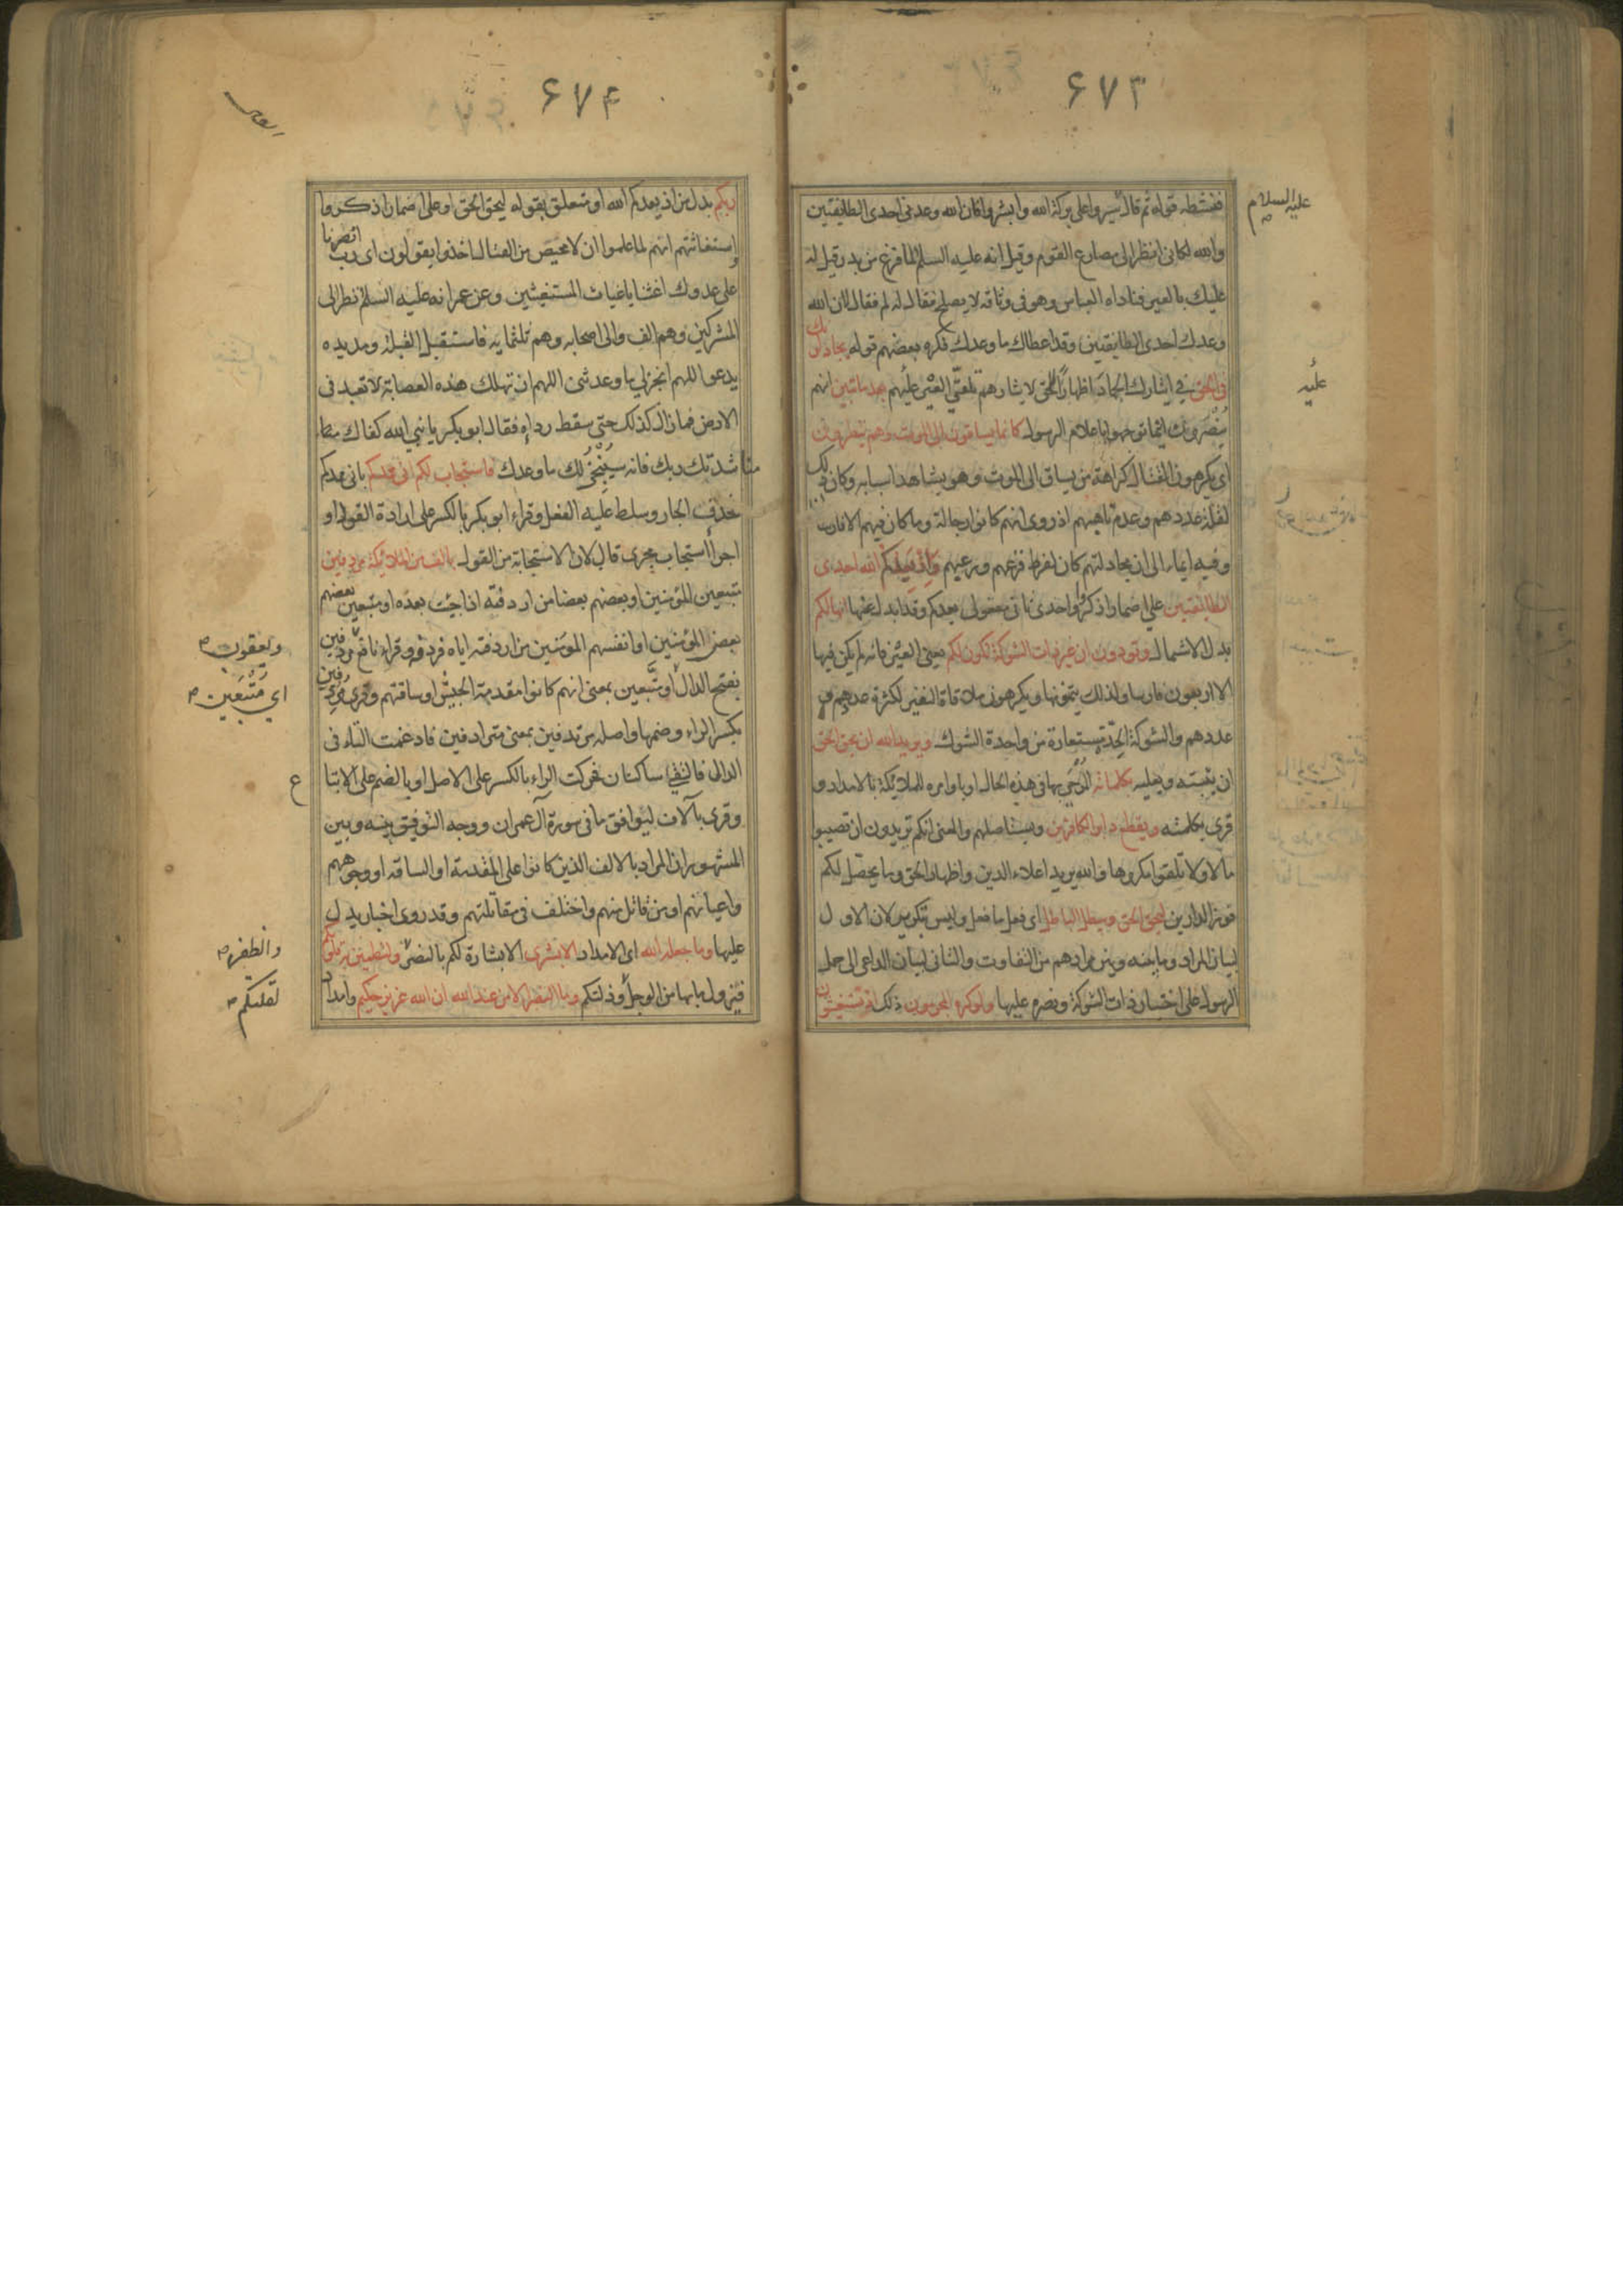 ۶۷۳
عليه السلام
فنشطه قوله ثم قال سيروا على بركة الله وابشروا فان الله وعدني احدى الطايفتين
والله لكاني انظر الى مصارع القوم وقيل انه عليه السلم لما فرغ من بدر قيل له
عليك بالعير فناداه العباس وهو في وثاقه لا يصلح فقال له لم فقال لان الله
وعدك احدى الطايفتين وقد اعطاك ما وعدك فكره بعضهم قوله يجادلونك
في الحق في ايثارك الجهاد اظهار الحق لايثارهم تلقي العير عليهم بعد ما تبين انهم
عليه
ينصرون اينما توجهوا باعلام الرسول كانما يساقون الى الموت وهم ينظرون
اي يكرهون القتال كراهة من يساق الى الموت وهو يشاهد اسبابه وكان ذلك
لقلة عددهم وعدم تاهبهم اذ روي انهم كانوا رجالة وما كان فيهم الا فارسان
وفيه ايماء الى ان مجادلتهم كان لفرط فزعهم ورعبهم واذ يعدكم الله احدى
الطايفتين على اضمار اذكر واحدى ثاني مفعولي يعدكم وقد ابدل عنها انها لكم
بدل الاشتمال وتودون ان غير ذات الشوكة تكون لكم يعني العير فانه لم يكن فيها
الا اربعون فارسا ولذلك يتمنونها ويكرهون ملاقاة النفير لكثرة عددهم و
عددهم والشوكة الحدة مستعارة من واحدة الشوك ويريد الله ان يحق الحق
ان يثبته ويعليه بكلماته الموحى بها في هذه الحال او باوامره للملائكة بالامداد و
قرئ بكلمته ويقطع دابر الكافرين ويستاصلهم والمعنى انكم تريدون ان تصيبوا
مالا ولا تلقوا مكروها والله يريد اعلاء الدين واظهار الحق وما يحصل لكم
فوز الدارين ليحق الحق ويبطل الباطل اي فعل ما فعل وليس بتكرير لان الاول
لبيان المراد وما بينه وبين مرادهم من التفاوت والثاني لبيان الداعي الى حمل
الرسول على اختيار ذات الشوكة ونصره عليها ولو كره المجرمون ذلك اذ تستغيثون
۶۷۴
ربكم بدل من اذ يعدكم الله او متعلق بقوله ليحق الحق او على اضمار اذكروا
واستغاثتهم انهم لما علموا ان لا محيص من القتال اخذوا يقولون اي رب انصرنا
على عدوك اغثنا يا غياث المستغيثين وعن عمر انه عليه السلم نظر الى
المشركين وهم الف والى اصحابه وهم ثلثمايه فاستقبل القبلة ومد يده
يدعو اللهم انجز لي ما وعدتني اللهم ان تهلك هذه العصابة لا تعبد في
الارض فما زال كذلك حتى سقط رداءه فقال ابو بكر يا نبي الله كفاك
مناشدتك ربك فانه سينجز لك ما وعدك فاستجاب لكم اني ممدكم باني ممدكم
فحذف الجار وسلط عليه الفعل وقراء ابو بكر بالكسر على ارادة القول او
اجرا استجاب مجرى قال لان الاستجابة من القول بالف من الملائكة مردفين
متبعين المؤمنين او بعضهم بعضا من اردفته اذا جئت بعده او متبعين بعضهم
بعض المؤمنين او انفسهم المؤمنين من اردفته اياه فردفه وقراء نافع مردفين
ويعقوب
بفتح الدال او متبعين بمعنى انهم كانوا مقدمة الجيش او ساقتهم وقرئ مردفين
اي مُتَّبَعين
بكسر الراء وضمها واصله مرتدفين بمعنى مترادفين فادغمت التاء في
الدال فالتقي ساكنان فحركت الراء بالكسر على الاصل او بالضم على الاتبا
ع
وقرئ بآلاف ليوافق ما في سورة آل عمران ووجه التوفيق بينه وبين
المشهور ان المراد بالالف الذين كانوا على المقدمة او الساقه او وجوههم
واعيانهم او من قاتل منهم واختلف في مقاتلتهم وقد روى اخبار يدل
عليها وما جعله الله اى الامداد الا بشرى الا بشارة لكم بالنصر ولتطمئن به قلوبكم
والظفر
فيزول ما بها من الوجل وذلتكم وما النصر الا من عند الله ان الله عزيز حكيم وامداد
لقلتكم